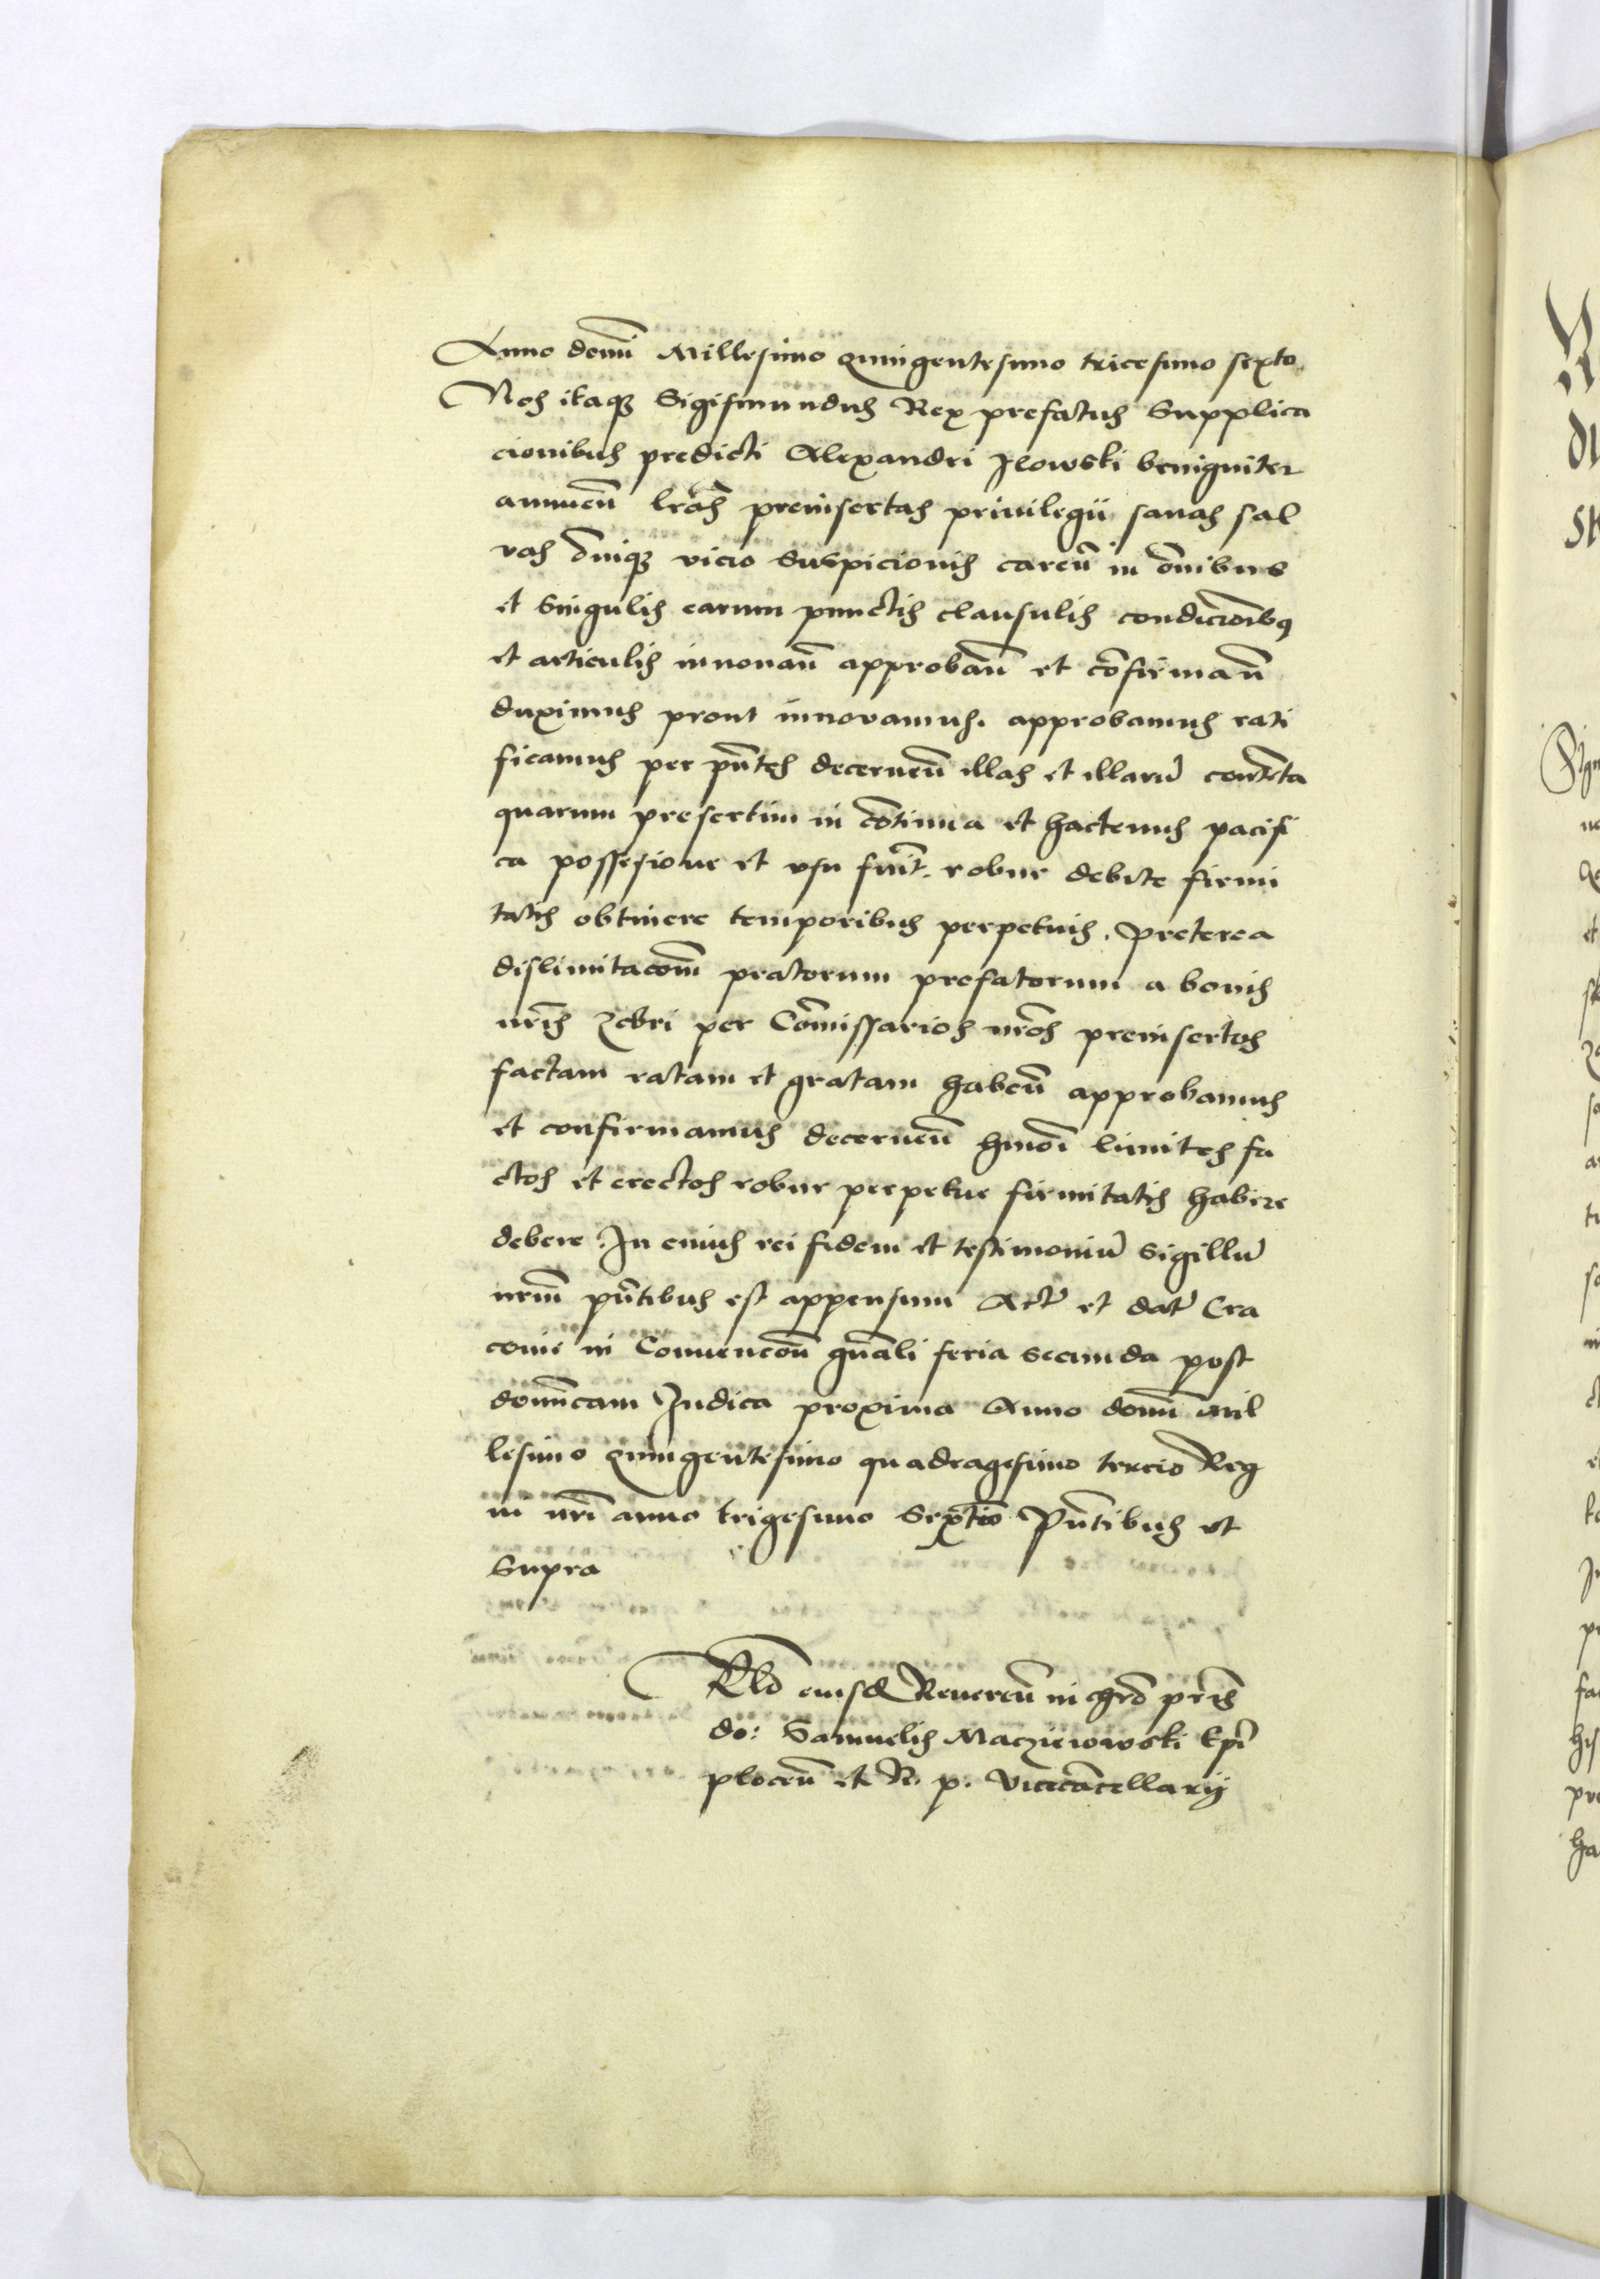 Anno domi Millesimo quingentesimo tricesimo sexto
Nos itaqꝫ Sigismundus Rex prefatus Supplica
cionibus predicti Alexandri Ilowski benigniter
annueñ lrãs preinsertas priuilegii sanas sal
vas õniqꝫ vicio suspicionis careñ in õnibus
et singulis earum punctis clausulis condicõibꝰ
et articulis innovañ approbañ et cõfirmañ
duximus prout innovamus. approbamus rati
ficamus per pñtes decerneñ illas et illarũ contẽta
quarum presertim in cõtinua et hactenus pacifi
ca possesione et vsu fuit. robur debite firmi
tatis obtinere temporibus perpetuis. Preterea
dislimitacõm pratorum prefatorum a bonis
nr̃is Zebri per Cõmissarios nr̃os preinsertos
factam ratam et gratam habeñ approbamus
et confirmamus decerneñ hmõi limites fa
ctos et erectos robur perpetue firmitatis habere
debere. In cuius rei fidem et testimoniũ sigillũ
nr̃m pñtibus est appensum Actũ et datũ Cra
couie in Conuencoñ gñali feria secunda post
domĩcam Judica proxima Anno domi mil
lesimo quingentesimo quadragesimo tercio Reg
ni nr̃i anno trigesimo Septĩo Pñtibus vt
supra
Rlõ eiusd Reuereñ in chrõ pr̃is
do: Samuelis Macziewowski Epi
ploceñ et R. p. Vicecãcellarij